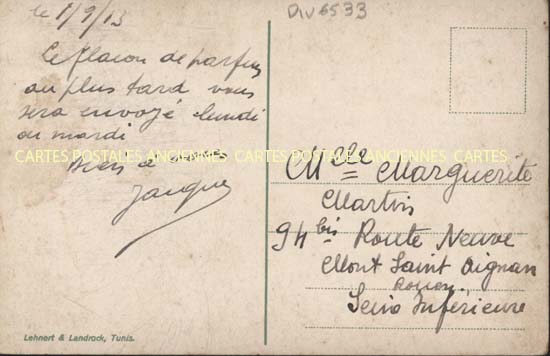 le 1/9/13
DIV6533
Le flacon de parfum
au plus tard vous
sera envoyé lundi
ou mardi
Bien à vous
Jacques
CARTES POSTALES ANCIENNES CARTES POSTALES ANCIENNES
Mlle Marguerite
Martin
94 bis Route Neuve
Mont Saint Aignan
Rouen
Seine Inférieure
Lehnert & Landrock, Tunis.